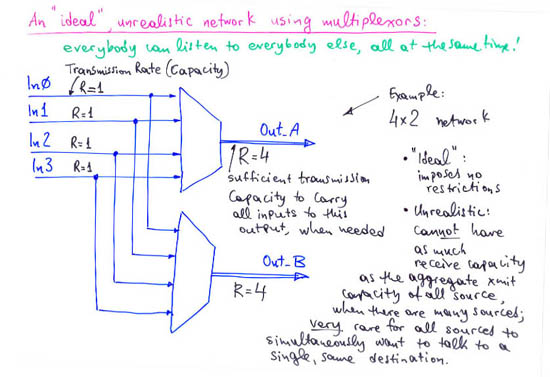 An "ideal", unrealistic network using multiplexors:
everybody can listen to everybody else, all at the same time!
Transmission Rate (Capacity)
In0 R=1
In1 R=1
In2 R=1
In3 R=1
Out_A
R=4
sufficient transmission
capacity to carry
all inputs to this
output, when needed
Out_B
R=4
Example:
4x2 network
• "Ideal":
imposes no
restrictions
• Unrealistic:
cannot have
as much
receive capacity
as the aggregate xmit
capacity of all source,
when there are many sources;
very rare for all sources to
simultaneously want to talk to a
single, same destination.